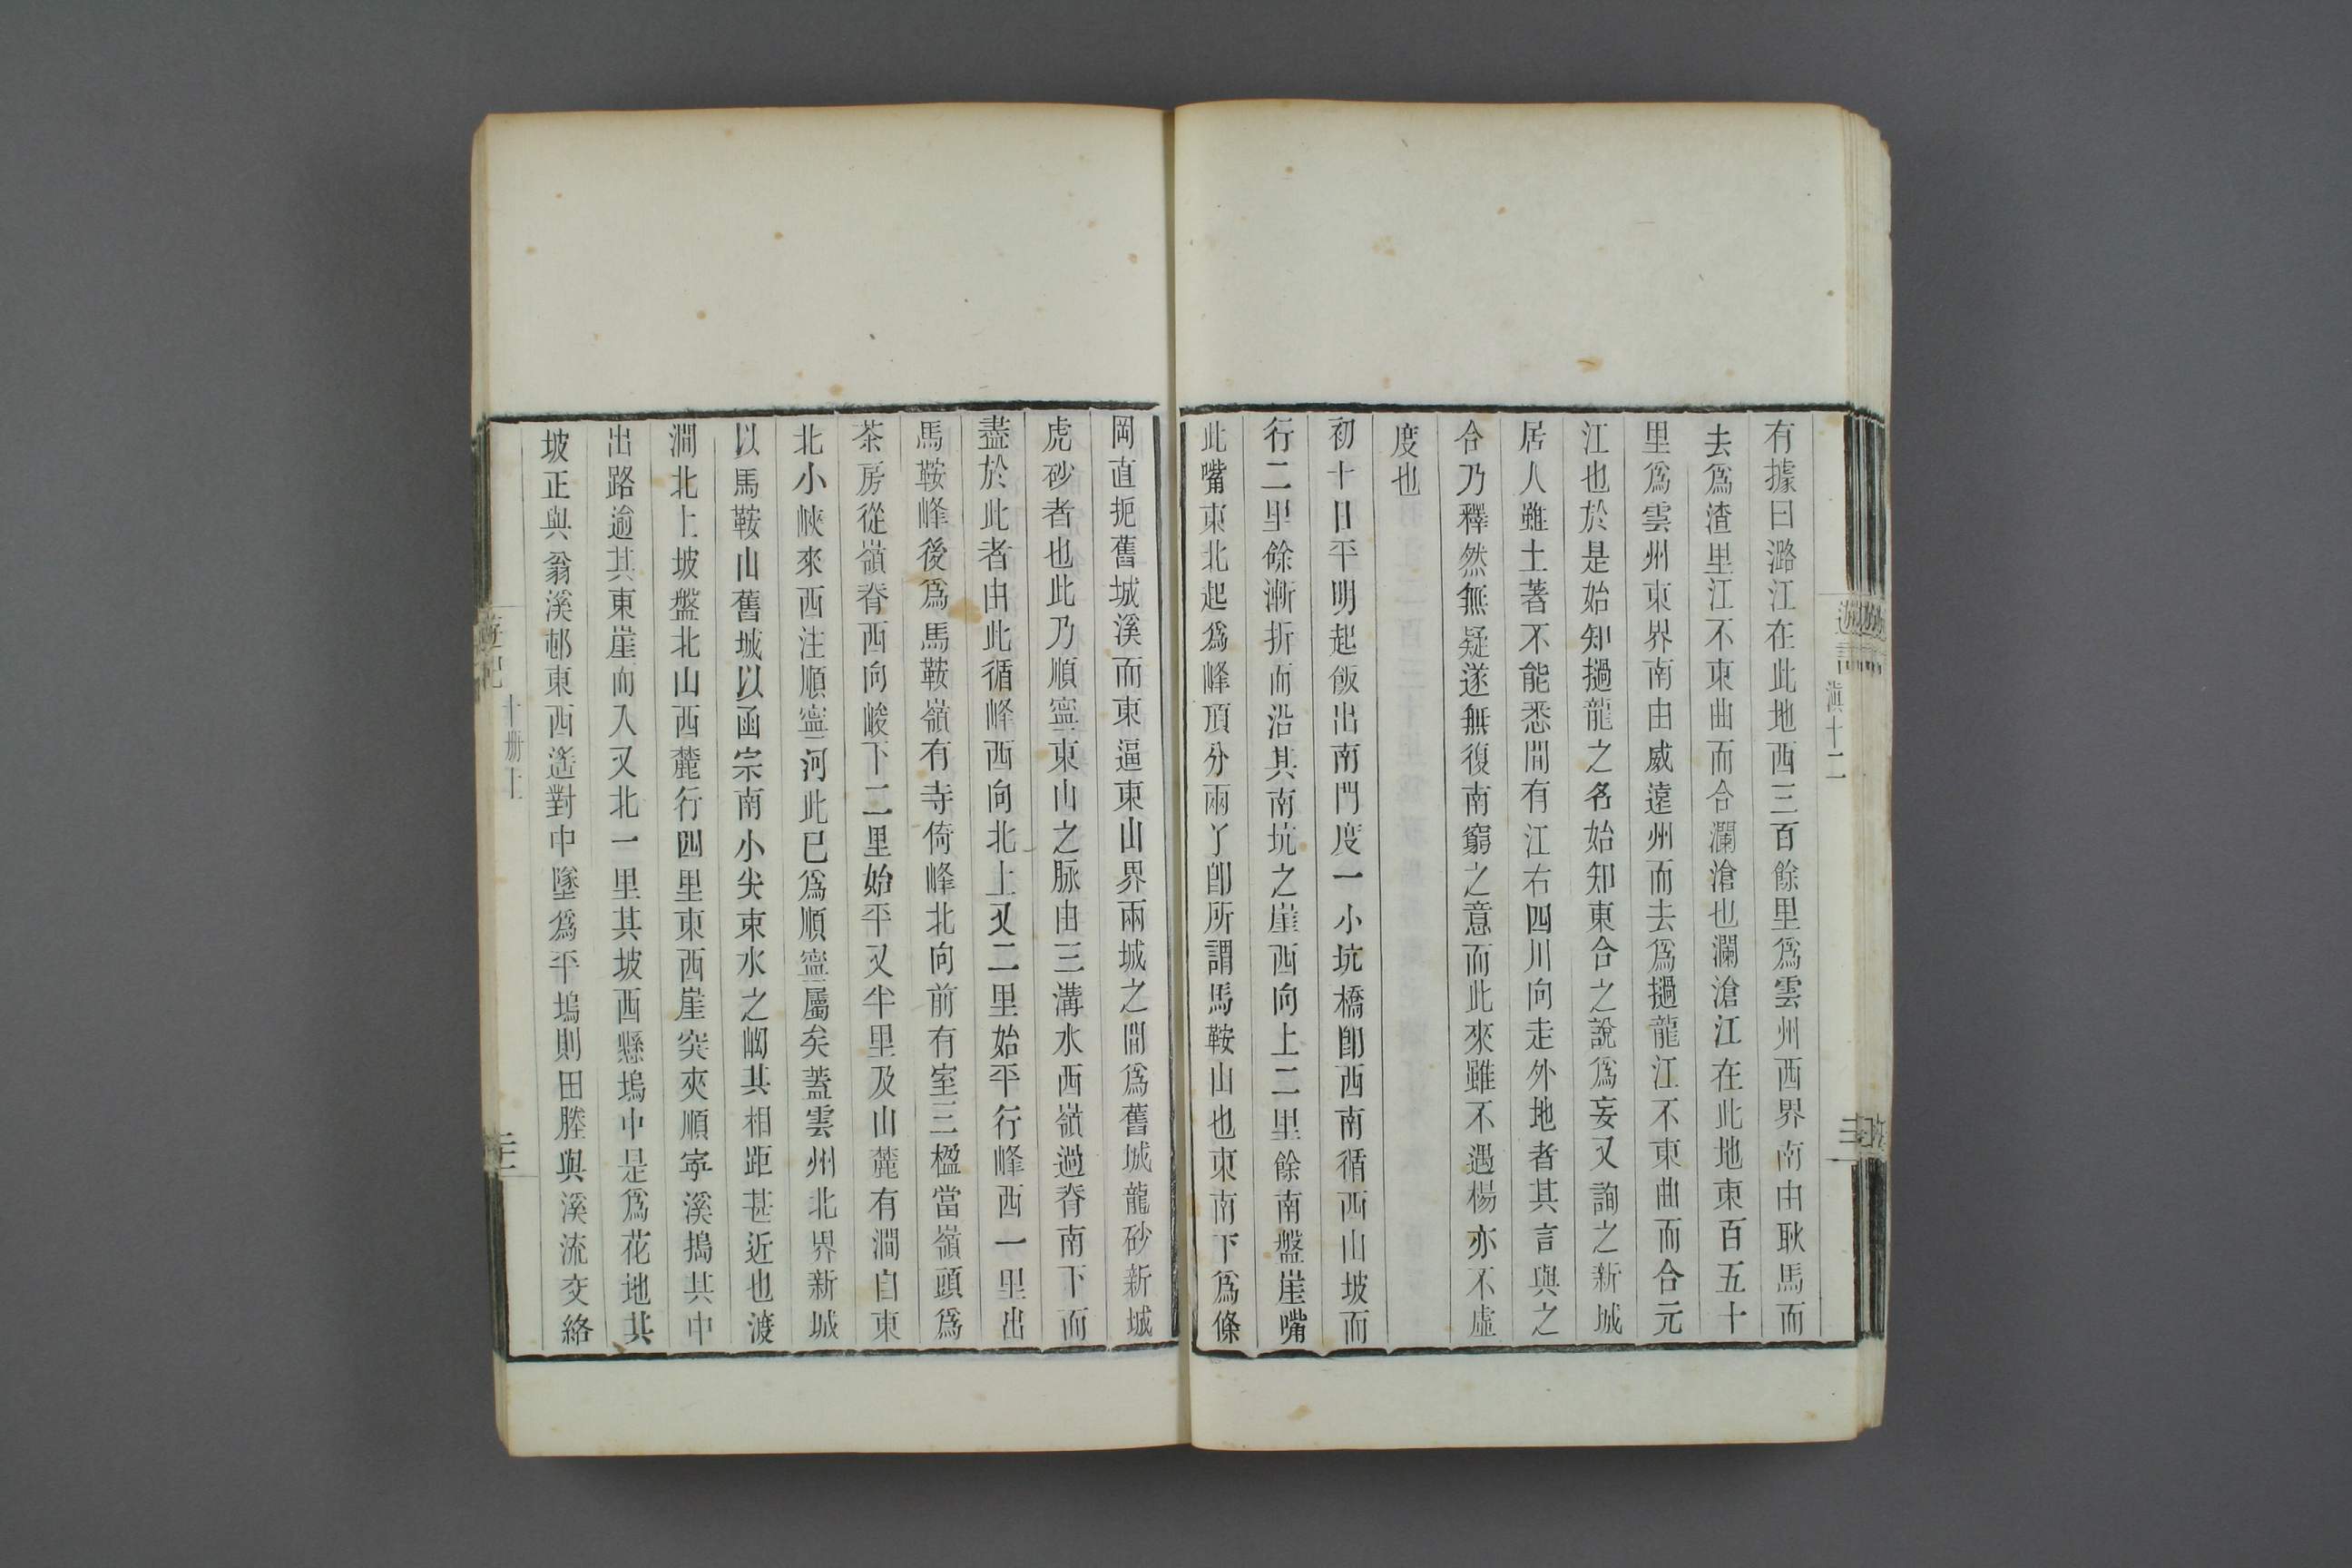 滇十二
有據曰潞江在此地西三百餘里爲雲州西界南由耿馬而
去爲渣里江不東曲而合瀾滄也瀾滄江在此地東百五十
里爲雲州東界南由威遠州而去爲撾龍江不東曲而合元
江也於是始知撾龍之名始知東合之說爲妄又詢之新城
居人雖土著不能悉間有江右四川向走外地者其言與之
合乃釋然無疑遂無復南窮之意而此來雖不遇楊亦不虛
度也
初十日平明起飯出南門度一小坑橋卽西南循西山坡而
行二里餘漸折而沿其南坑之崖西向上二里餘南盤崖嘴
此嘴東北起爲峰頂分兩丫卽所謂馬鞍山也東南下爲條
岡直扼舊城溪而東逼東山界兩城之間爲舊城龍砂新城
虎砂者也此乃順寧東山之脉由三溝水西嶺過脊南下而
盡於此者由此循峰西向北上又二里始平行峰西一里出
馬鞍峰後爲馬鞍嶺有寺倚峰北向前有室三楹當嶺頭爲
茶房從嶺脊西向峻下二里始平又半里及山麓有澗自東
北小峽來西注順寧河此已爲順寧屬矣蓋雲州北界新城
以馬鞍山舊城以函宗南小尖東水之峒其相距甚近也渡
澗北上坡盤北山西麓行四里東西崖突夾順寧溪搗其中
出路逾其東崖而入又北一里其坡西懸塢中是爲花地其
坡正與翁溪邨東西遙對中墜爲平塢則田塍與溪流交絡
遊記
十册上